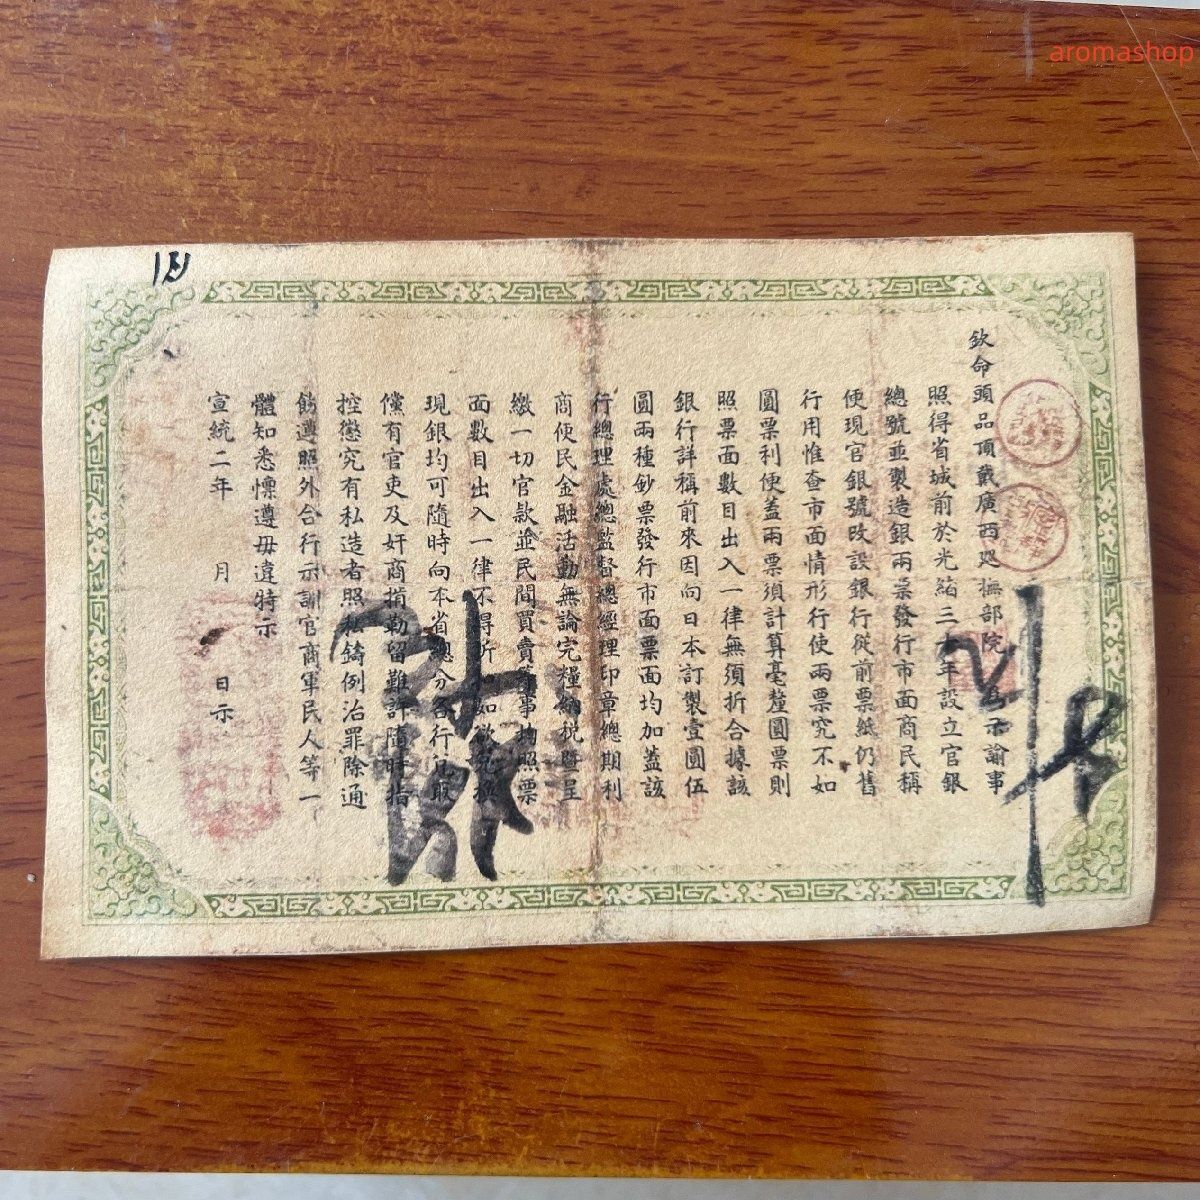 aromashop
欽命頭品頂戴廣西廵撫部院 為示諭事
照得省城前於光緒三十年設立官銀
總號並製造銀兩票發行市面商民稱
便現官銀號改設銀行從前票紙仍舊
行用惟查市面情形行使兩票究不如
圓票利便蓋兩票須計算毫釐圓票則
照票面數目出入一律無須折合據該
銀行詳稱前來因向日本訂製壹圓伍
圓兩種鈔票發行市面票面均加蓋該
行總理處總監督總經理印章總期利
商便民金融活動無論完糧納稅暨呈
繳一切官款並民間買賣等事均照票
面數目出入一律不得折 如欲兌換
現銀均可隨時向本省總分各行兌取
儻有官吏及奸商掯勒留難許隨時指
控懲究有私造者照私鑄例治罪除通
飭遵照外合行示訓官商軍民人等一
體知悉懍遵毋違特示
宣統二年 月 日示